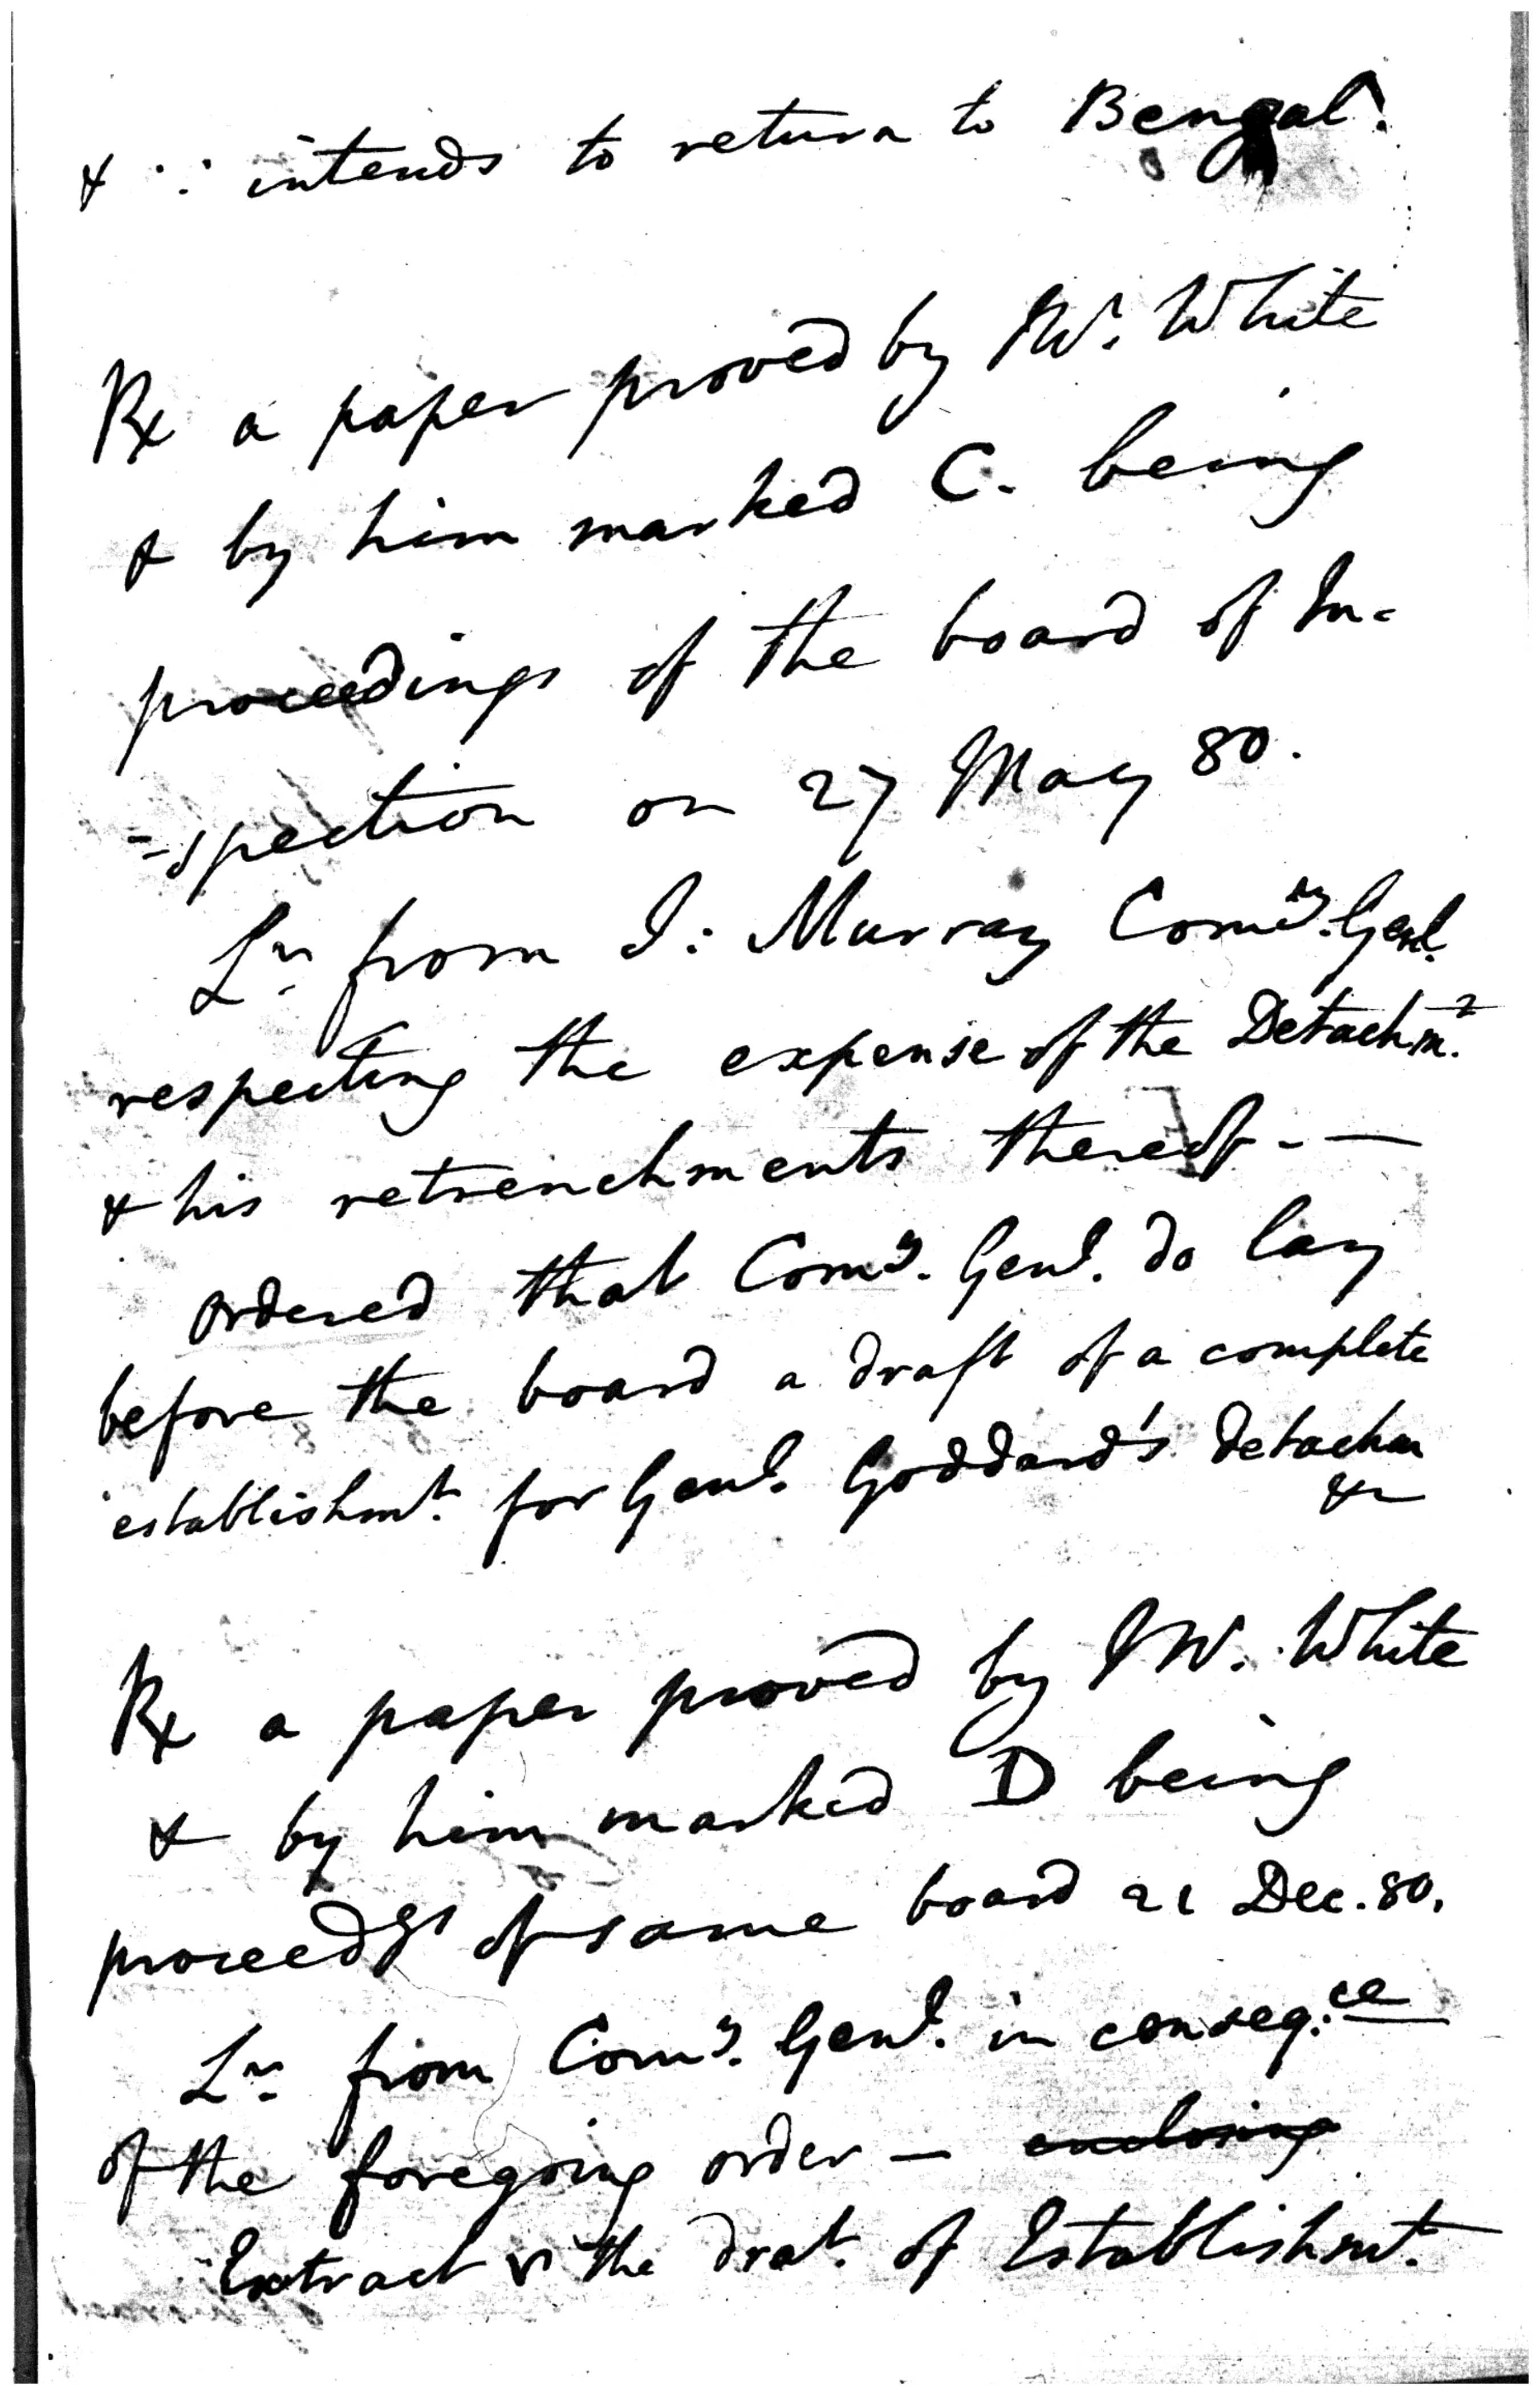 & ∴ intends to return to Bengal.
Rx a paper proved by Mr. White
& by him marked C. being
proceedings of the board of In-
=spection on 27 May 80.
Lr. from J: Murray Comy. Genl.
respecting the expense of the Detachmt.
& his retrenchments thereof - —
ordered that Comy. Genl. do lay
before the board a draft of a complete
establishmt. for Genl. Goddard's detachm
&c
Rx a paper proved by Mr. White
& by him marked D being
proceedgs of same board 21 Dec. 80.
Lr. from Comy. Genl. in conseq:ce
of the foregoing order — enclosing
Extract the drat. of Establishmt.